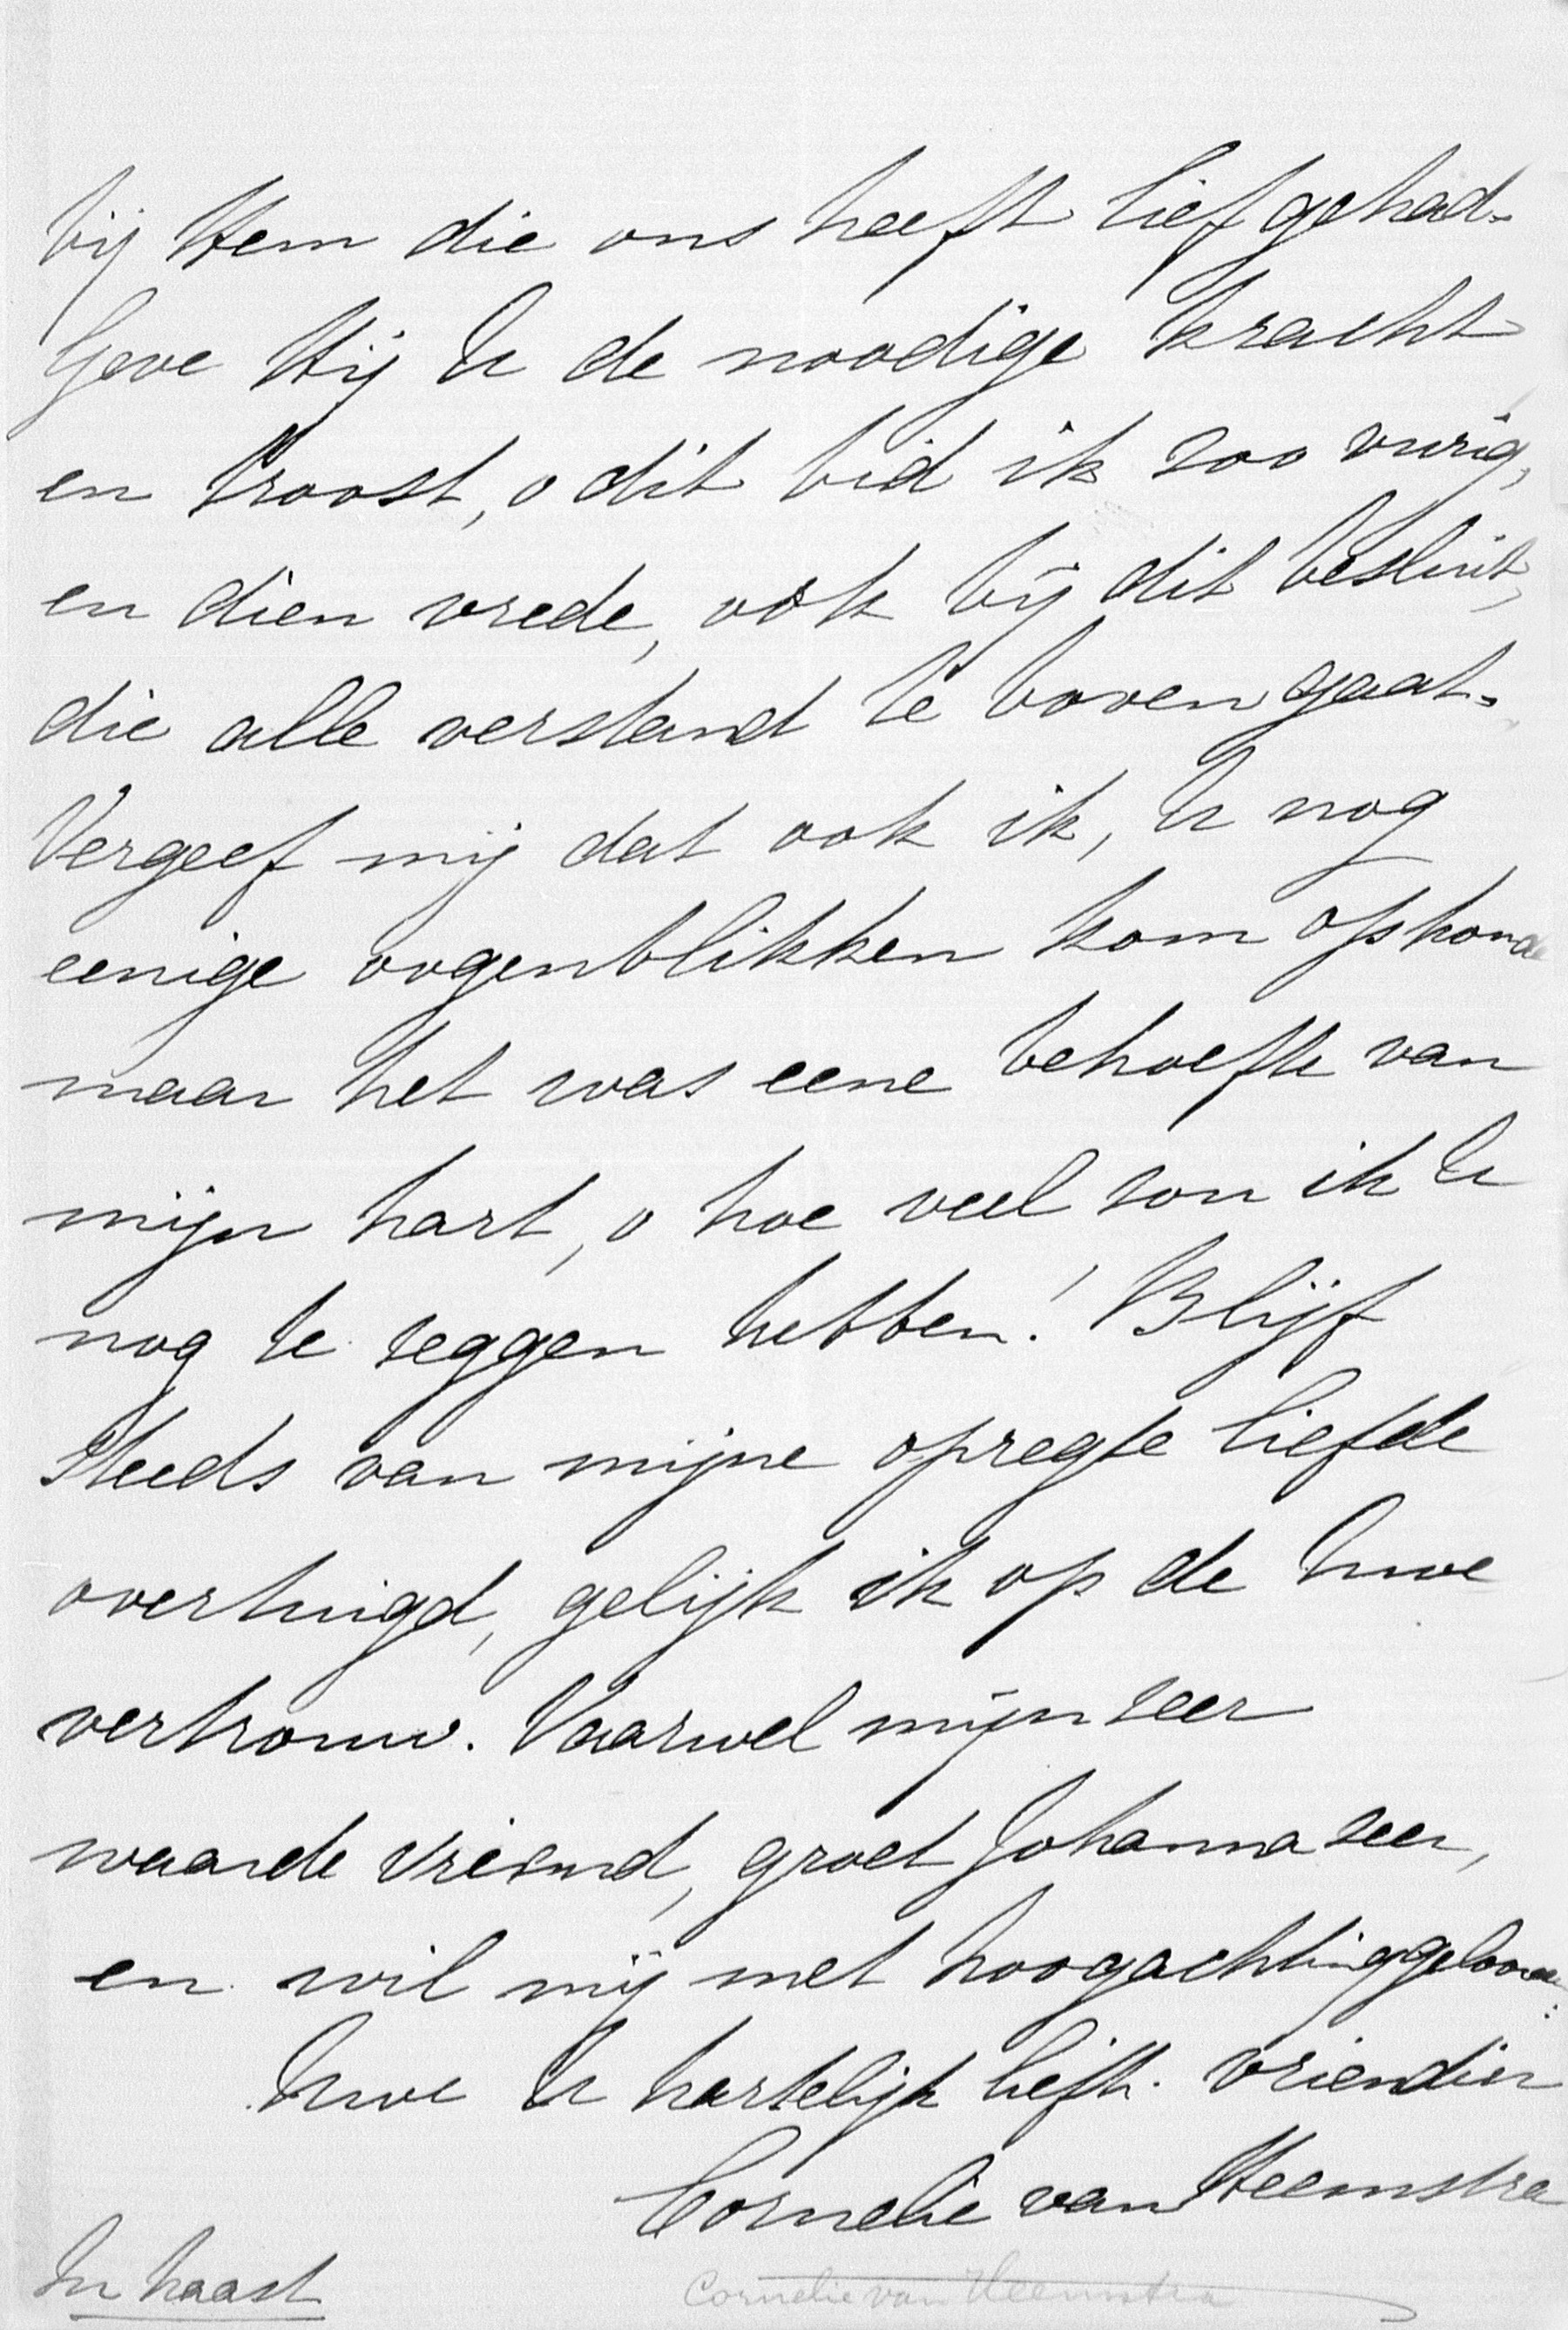 bij Hem die ons heeft liefgehad.
Geve Hij U de noodige kracht
en troost, o dit bid ik zoo vurig,
en dien vrede, ook bij dit besluit,
die alle verstand te boven gaat.
Vergeef mij dat ook ik, U nog
eenige oogenblikken kom ophouden
maar het was eene behoefte van
mijn hart, o hoe veel zou ik U
nog te zeggen hebben! Blijf
steeds van mijne opregte liefde
overtuigd, gelijk ik op de Uwe
vertrouw. Vaarwel mijn zeer
waarde vriend, groet Johanna zeer,
en wil mij met hoogachting gelooven:
Uwe U hartelijk liefh. vriendin
Cornelie van Heemstra
In haast
Cornelie van Heemstra